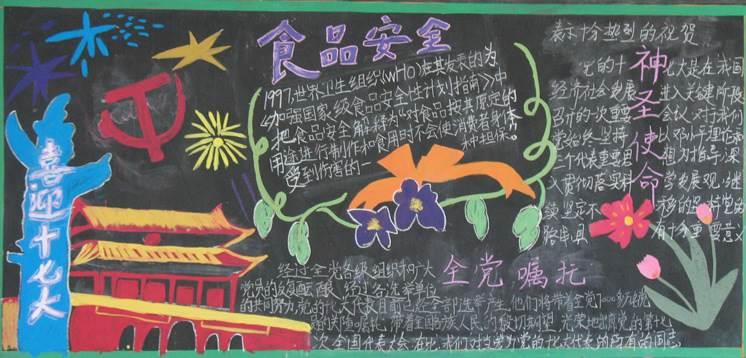 喜迎十七大
食品安全
1997,世界卫生组织(WHO)在其发表的为
《加强国家级食品安全性计划指南》中
把食品安全解释为"对食品按其原定的
用途进行制作和食用时不会使消费者身体
受到伤害的一种担保。"
表示十分热烈的祝贺
神圣使命
党的十七大是在我国
经济社会发展进入关键阶段
召开的一次重要会议,对于我们
党始终坚持以邓小平理论和
三个代表重要思想为指导,深
入贯彻落实科学发展观,继
续坚定不移的
具有十分重要意义
全党嘱托
经过全党各级组织和广大
党员的反复酝酿,经过各选举单位
的共同努力,党的十七大代表目前已经全部选举产生,他们将带着全党7000多万党
员的嘱托,带着全国各族人民的殷切期望,光荣地出席党的第十七
次全国代表大会,在此,我们对当选为党的十七大代表的所有的同志